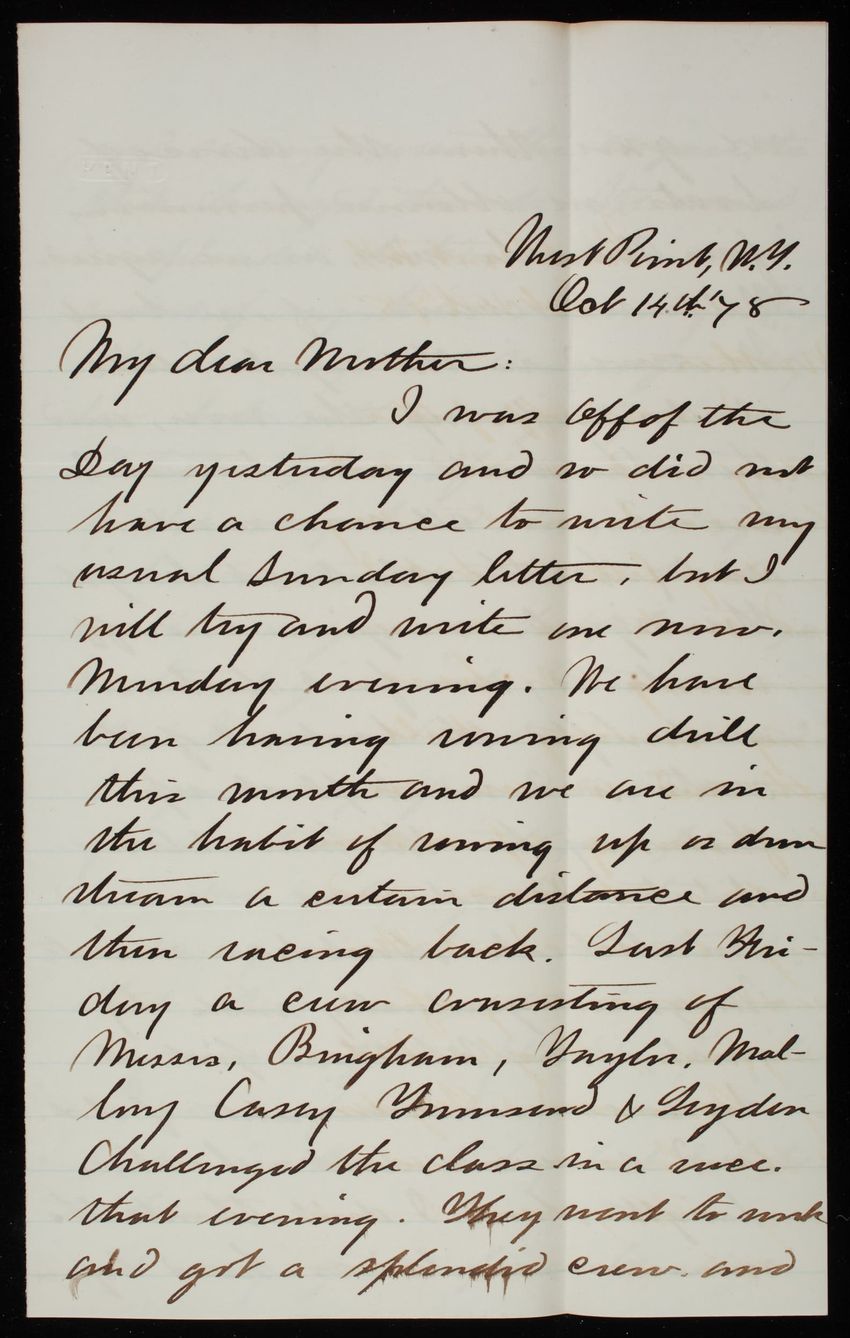 West Point, N.Y.
Oct 14th '78
My dear Mother:
I was Off of the
Day yesterday and so did not
have a chance to write my
usual Sunday letter, but I
will try and write one now.
Monday evening. We have
been having rowing drill
this month and we are in
the habit of rowing up or down
stream a certain distance and
then racing back. Last Fri-
day a crew consisting of
Messrs, Bingham, Taylor, Mal-
lory Casey Townsend & Leyden
Challenged the class in a race.
that evening. They went to work
and got a splendid crew. and